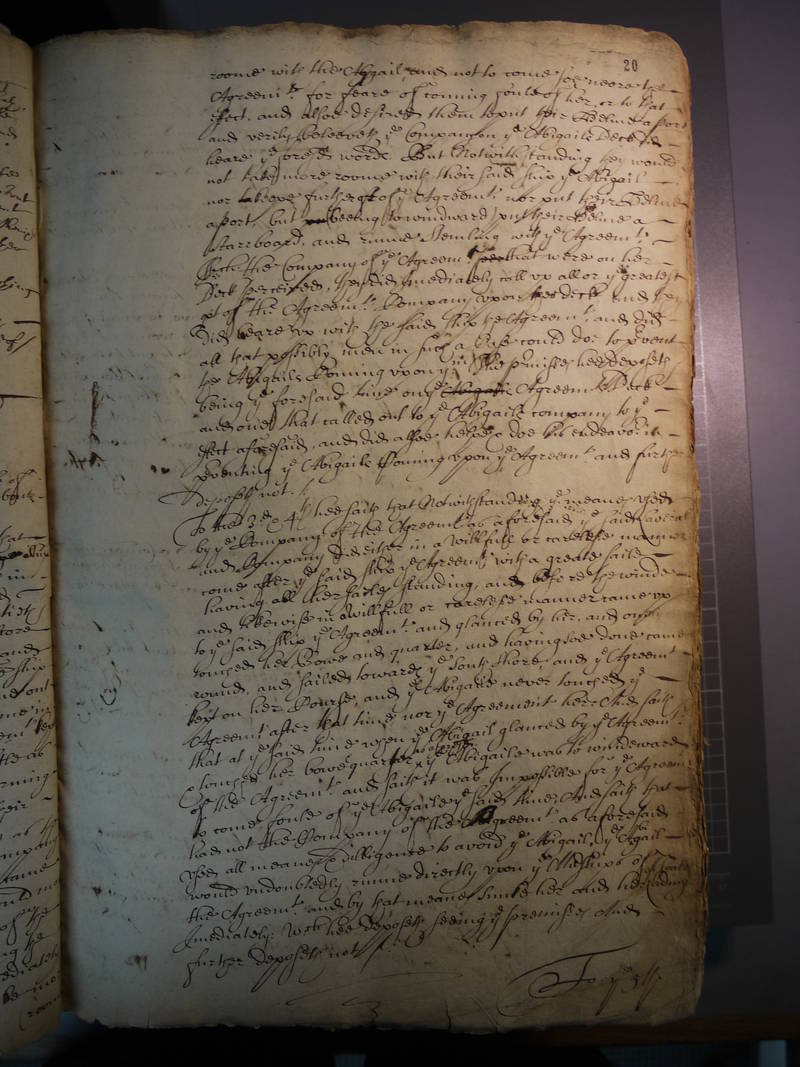 20
roome with the Abigail, and not to come soe neere the
Agreemt: for feare of comming foule of her, or to that
effect, and alsoe desired them to put their Helme aport
and verily beleeveth ye Company on ye Abigails Deck did
heare ye foresd words. But Notwithstanding they would
not take more roome with their said ship ye Abigail
nor keepe further of ye Agreemt: nor put their Helme
aport, but beeing to windward put their Helme a
starrboard, and runne Stemling with ye Agreemt:
wch the Company of ye Agreemt that were on her
Deck perceived, they did Imediately call up all or ye greatest
pt of the Agreemts: Company upon the deck and they
did beare up with the said ship the Agreemt: and did
all that possibly men in such a Case could doe to prvent
the Abigails Coming upon ym: The prmisses hee deposeth
being ye foresaid time on ye Agreemts Deck
and one that called out to ye Abigails company to ye
effect aforesaid, and did alsoe helpe doe his endeavor in
prventing ye Abigails Coming upon ye Agreemt: and further
deposeth not.
To the 3d & 4th hee saith that Notwithstanding ye meanes used
by ye Company of the Agreemt as aforesaid ye said
and Company did either in a willfull or carelesse manner
come after ye said ship ye Agreemt with a greate saile
having all her sailes standing, and before the winde
and likewise in a willfull or carelesse manner came up
to ye said ship ye Agreemt: and glanced by her, and only
touched her bowe and quarter, and having soe done came
round, and sailed towards ye South shore, and ye Agreemt
kept on her Course, and ye Abigaile never touched ye
Agreemt after that time nor ye Agreement her: And saith
that at ye said time when ye Abigail glanced by ye Agreemt:
& touched her bowe & quarter, ye Abigaile was to windeward
of the Agreemt: and saith it was Impossible for ye Agreemt:
to come foule of ye Abigaile ye said time; And saith that
had not the Company of the Agreemt: as aforesaid
used all meanes & dilligence to avoid ye Abigail, ye Abigail
would undoubtedly runne directly upon ye Midshipps of
the Agreemt: and by that meanes sunke her and her lading
Imediately: wch hee deposeth seeing ye premisses And
further deposeth not.
To ye 5th